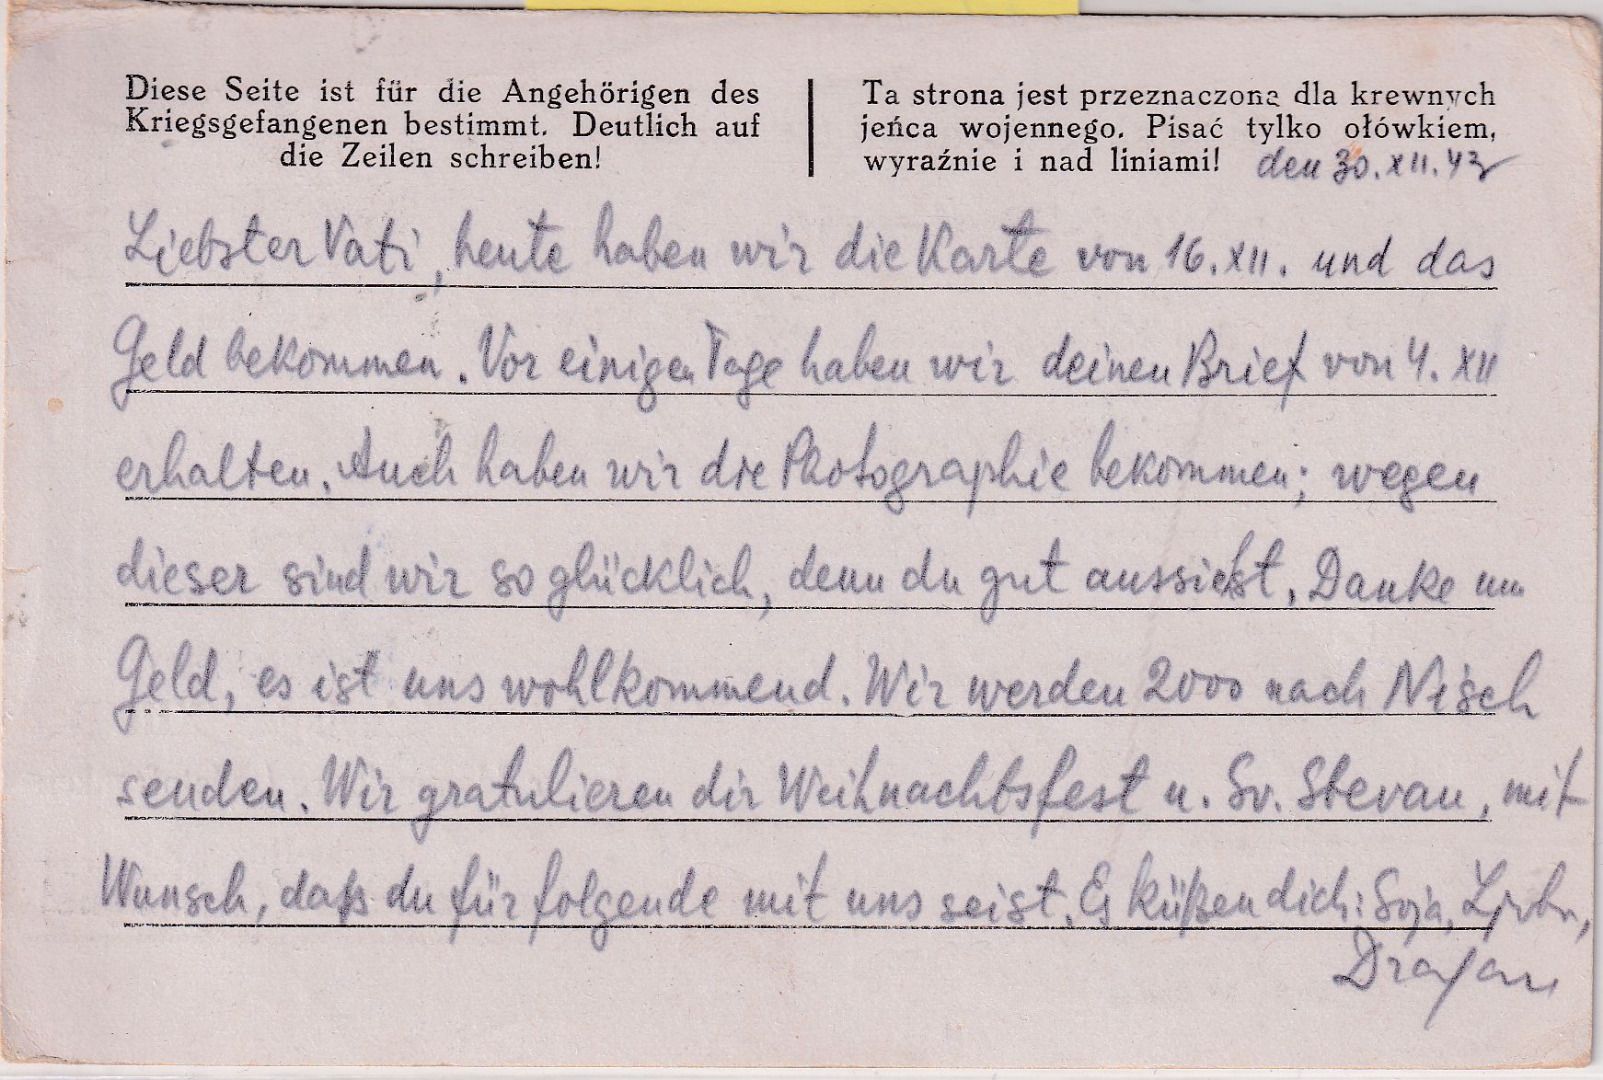 Diese Seite ist für die Angehörigen des
Kriegsgefangenen bestimmt. Deutlich auf
die Zeilen schreiben!
Ta strona jest przeznaczona dla krewnych
jeńca wojennego. Pisać tylko ołówkiem,
wyraźnie i nad liniami!
den 30. XII. 43
Liebster Vati, heute haben wir die Karte von 16. XII. und das
Geld bekommen. Vor einigen Tage haben wir deinen Brief von 4. XII
erhalten. Auch haben wir die Photographie bekommen; wegen
dieser sind wir so glücklich, denn du gut aussiehst. Danke um
Geld, es ist uns wohlkommend. Wir werden 2000 nach Nisch
senden. Wir gratulieren dir Weihnachtsfest u. Sv. Stevan, mit
Wunsch, daß du für folgende mit uns seist. Es küßen dich:
Dragan